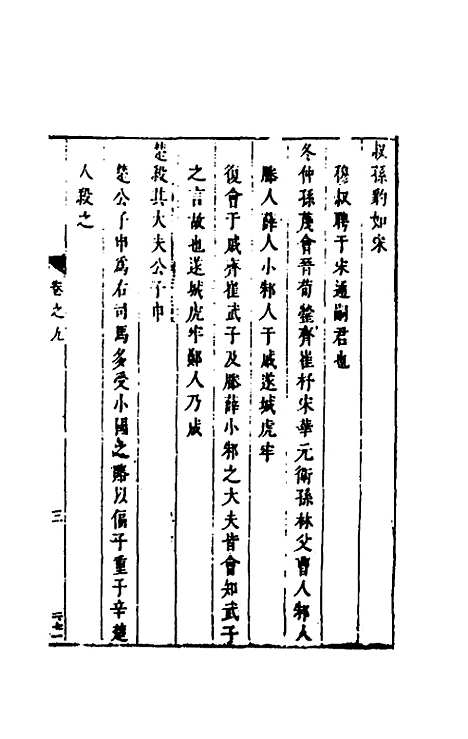 叔孫豹如宋
穆叔聘于宋通嗣君也
冬仲孫蔑會晉荀罃齊崔杼宋華元衛孫林父曹人邾人
滕人薛人小邾人于戚遂城虎牢
復會于戚齊崔武子及滕薛小邾之大夫皆會知武子
之言故也遂城虎牢鄭人乃成
楚殺其大夫公子申
楚公子申爲右司馬多受小國之賂以偪子重子辛楚
人殺之
卷之九
三